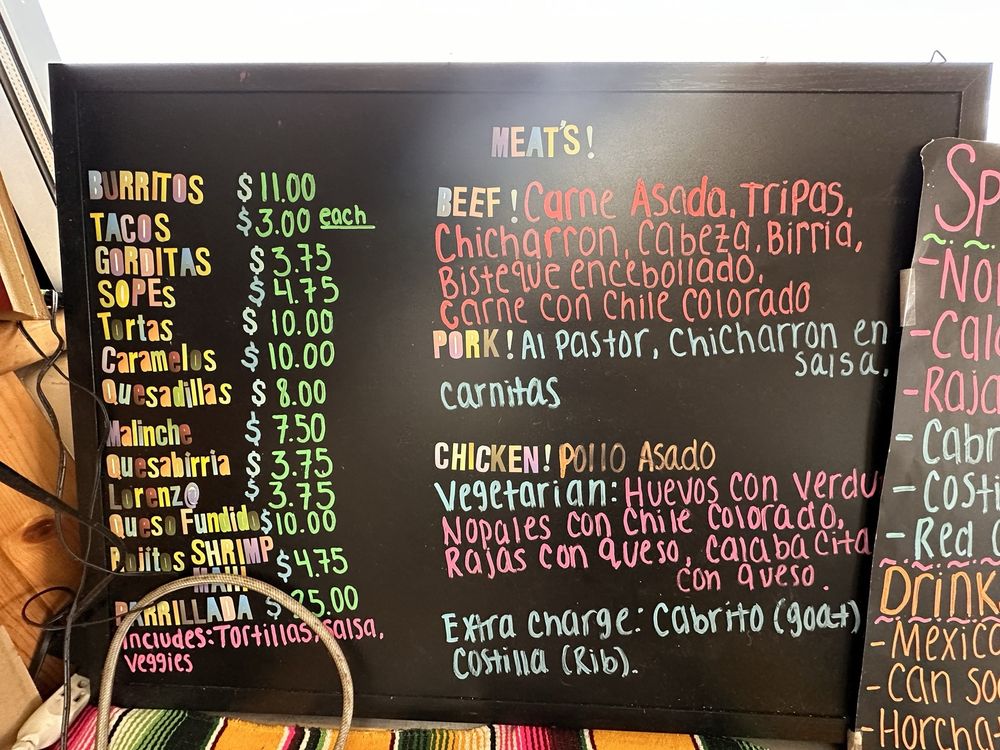 MEAT'S!
BURRITOS $11.00
TACOS $3.00 each
GORDITAS $3.75
SOPES $4.75
Tortas $10.00
Caramelos $10.00
Quesadillas $8.00
Malinche $7.50
Quesabirria $3.75
Lorenz@ $3.75
Queso Fundido $10.00
SHRIMP
MAHI $4.75
PARRILLADA $25.00
includes: Tortillas, salsa,
veggies
BEEF! Carne Asada, Tripas,
Chicharron, Cabeza, Birria,
Bisteque encebollado,
carne con chile colorado
PORK! Al Pastor, Chicharron en
salsa,
carnitas
CHICKEN! Pollo Asado
Vegetarian: Huevos con Verdu
Nopales con Chile Colorado,
Rajas con queso, calabacita
con queso.
Extra charge: Cabrito (goat)
Costilla (Rib).
Sp
-Nop
-Cala
-Raja
-Cabr
-Costi
-Red
Drink
-Mexico
-Can so
-Horcha